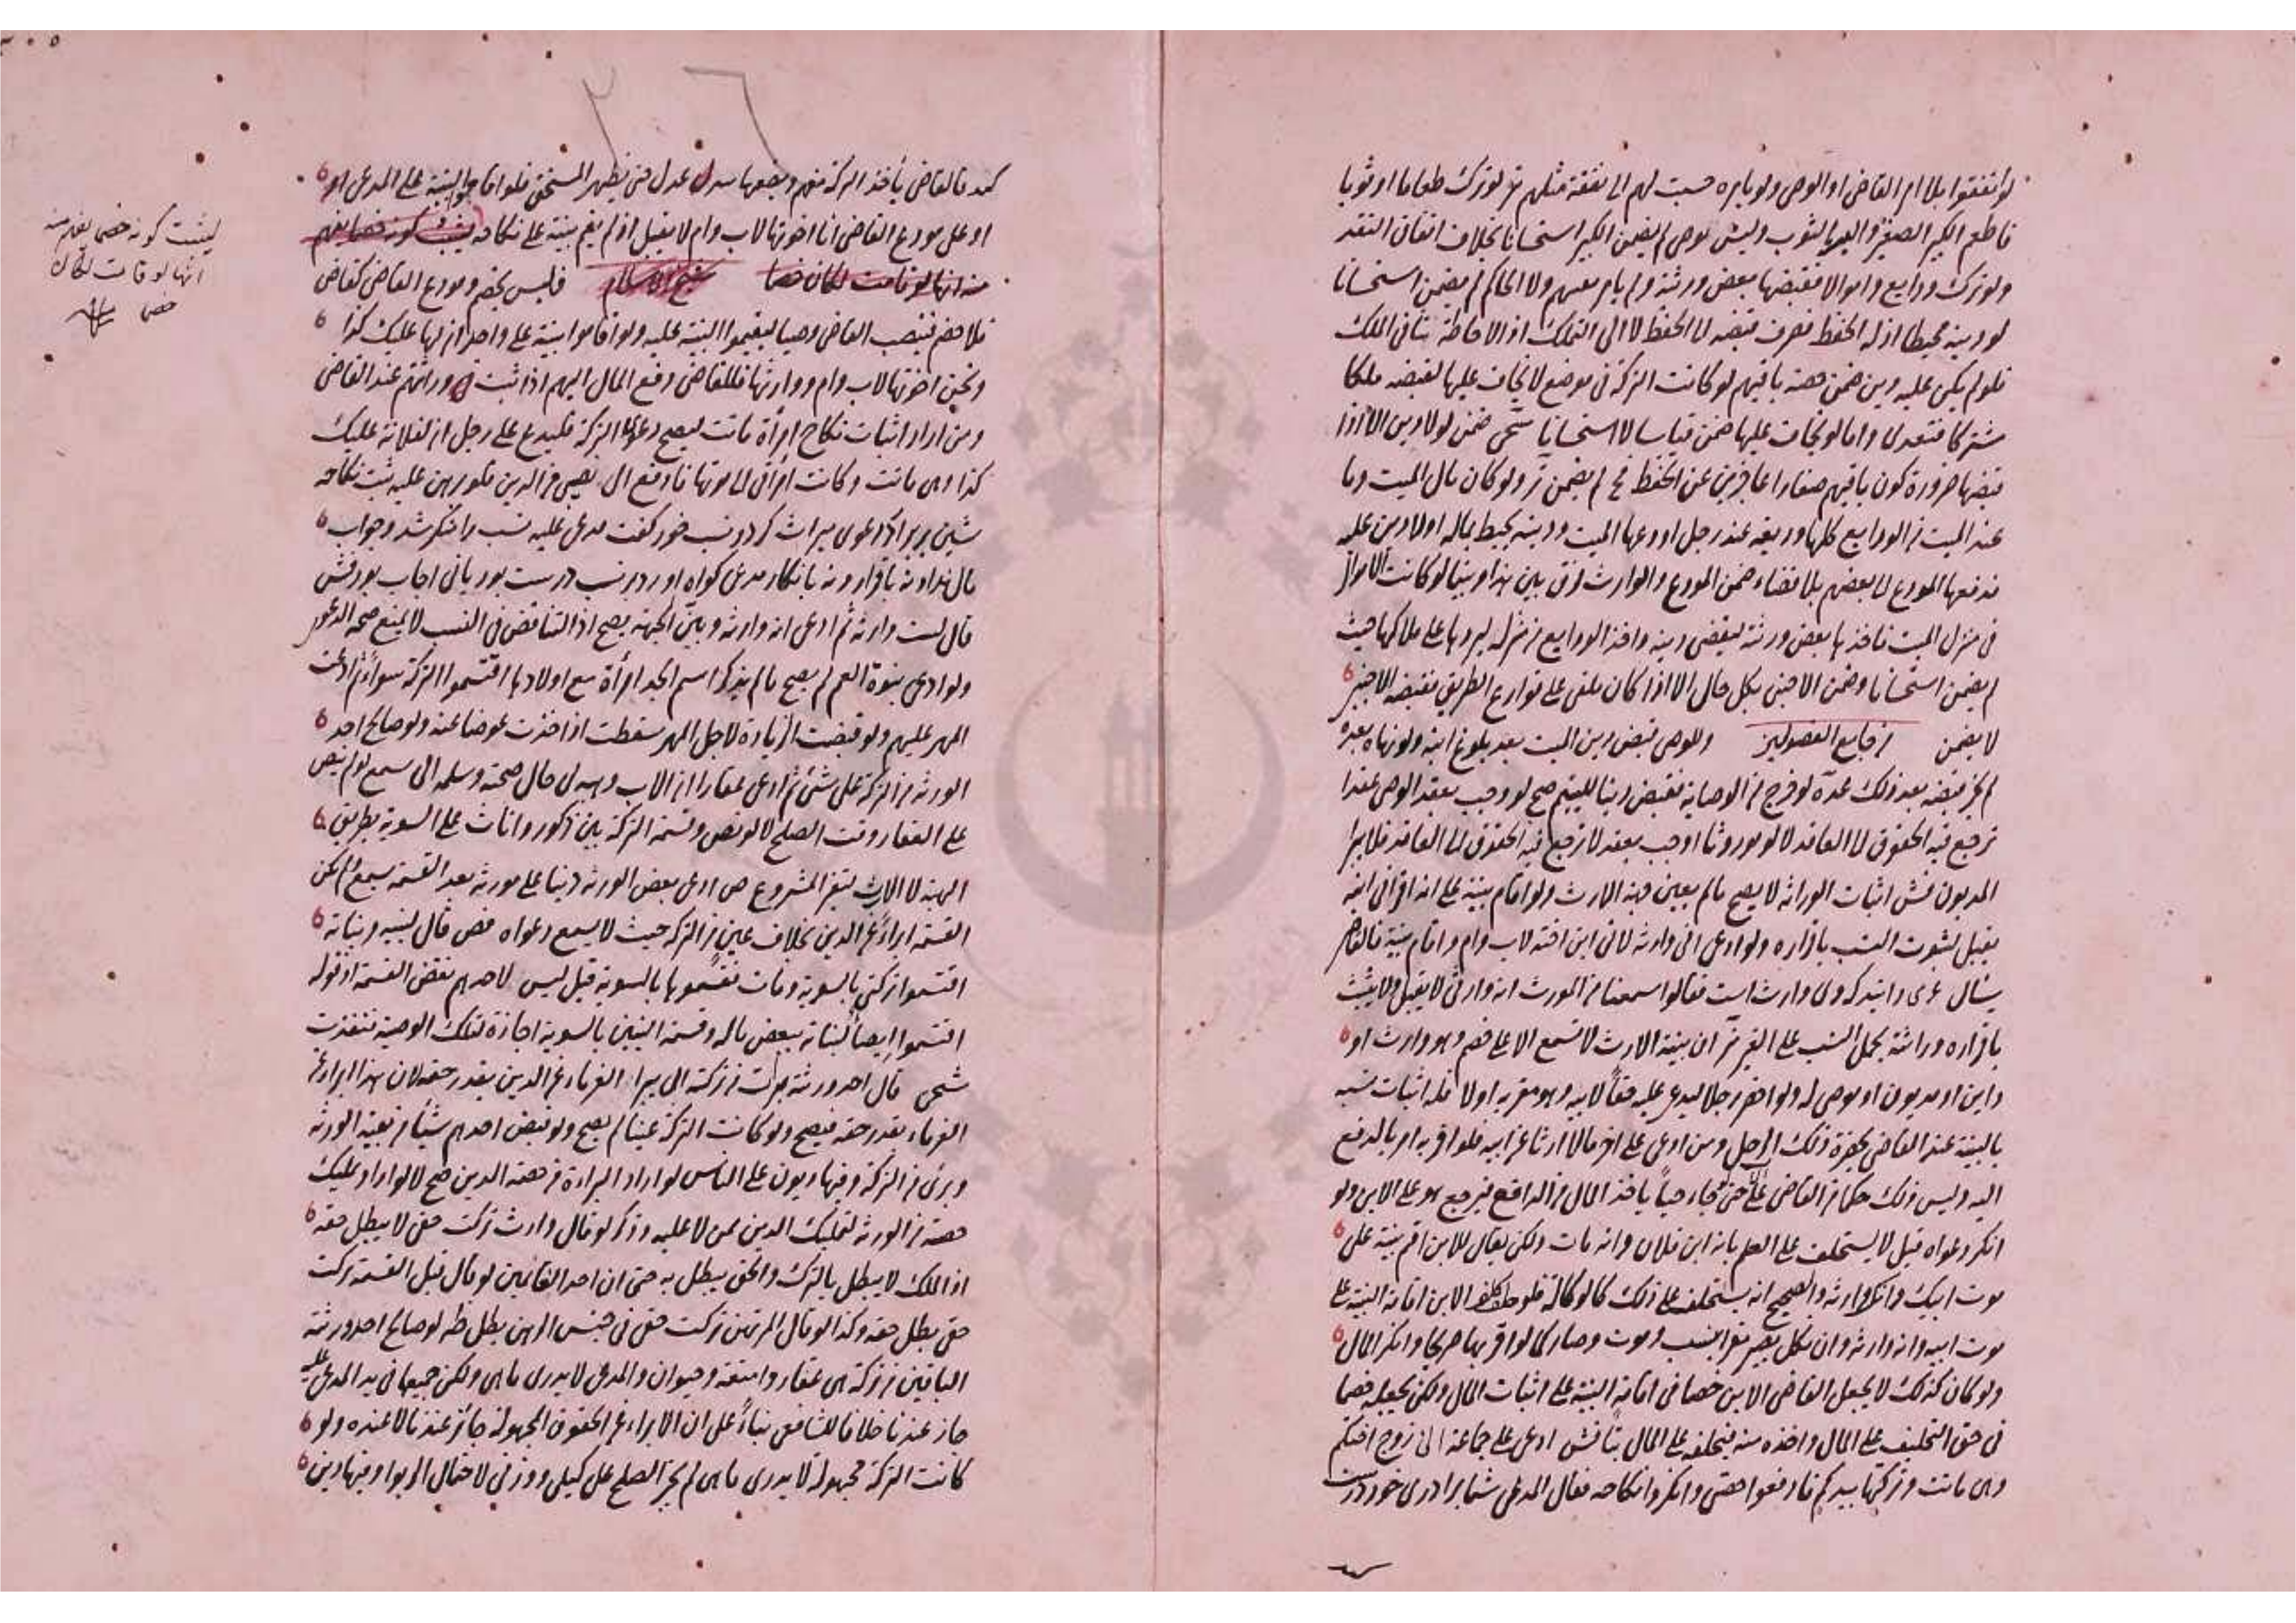 لو انفقوا بلا امر القاضي او الوصي ولو بامره حسبت لهم الى نفقة مثلهم ولو ترك طعاما او ثوبا
فاطعم الكبير الصغير والبسه الثوب وليس بوصي لم يضمن الكبير استحسانا بخلاف انفاق النقد
ولو ترك ودايع واموالا فقبضها بعض ورثته ولم يامر بعضهم ولا الحاكم لم يضمن استحسانا
لو دينه محيطا اذ له الحفظ فصرف قبضه الى الحفظ لا الى التملك اذ الاحاطة تنافي الملك
فلو لم يكن عليه دين ضمن حصة باقيهم لو كانت التركة في موضع لا يخاف عليها لقبضه ملكا
مشتركا فتعدى واما لو يخاف عليها ضمن قياسا لا استحسانا ضمن لو لا دين الا اذا
قبضها ضرورة كون باقيهم صغارا عاجزين عن الحفظ لم يضمن ولو كان مال الميت وما
عند الميت من الودايع كلها وديعة عند رجل اودعها الميت ودينه يحيط بماله اولا دين عليه
فدفعها المودع الى بعضهم بلا قضاء ضمن المودع والوارث فرق بين هذا وبينما لو كانت الاموال
في منزل الميت فاخذها بعض ورثته ليقضي دينه واخذ الودايع من منزله ليردها على ملاكها حيث
لم يضمن استحسانا وضمن الاجنبي بكل حال الا اذا كان ملقى على قوارع الطريق فقبضه الاجنبي
لا يضمن من جامع الفصولين وللوصي قبض دين الميت بعد بلوغ ابنه ولو نهاه بعده
لم يجز قبضه بعد ذلك عدة لو خرج من الوصاية فقبض دينا لليتيم صح لو وجب بعقد الوصي عقدا
ترجع فيه الحقوق الى العاقد لا لو موروثا او وجب بعقد لا ترجع فيه الحقوق الى العاقد فلا يبرا
المديون فش اثبات الوراثة لا يصح مالم يعين جهة الارث ولو اقام بينة على انه اقر اني ابنه
يقبل لثبوت النسب باقراره ولو ادعى اني وارثه لاني ابن اخته لاب وام واقام بينة فالقاضي
يسأل وارث است فقالوا سمعنا من المورث انه وارثي لا يقبل ولا يثبت
باقراره وراثته بحمل النسب على الغير ان بينة الارث لا تسمع الا على خصم وهو وارث او
داين او مديون او موصى له ولو احضر رجلا ليدعي عليه حقا لابيه وهو مقر به اولا فله اثبات نسبه
بالبينة عند القاضي بحضرة ذلك الرجل ومن ادعى على اخر مالا ارثا عن ابيه فلو اقر به امر بالدفع
اليه وليس ذلك حكما من القاضي حتى لو جاء حيا ياخذ المال من الدافع فيرجع هو على الابن ولو
انكر دعواه قيل لا يستحلف على العلم بانه ابن فلان وانه مات ولكن يقال للابن اقم بينة على
موت ابيك وانك وارثه والصحيح انه يستحلف على ذلك كالوكالة فلو حلف كلف الابن اقامة البينة على
موت ابيه وانه وارثه وان نكل يصير مقرا بنسب وموت وصار كما لو اقر بها صريحا وانكر المال
ولو كان كذلك لا يجعل القاضي الابن خصما في اقامة البينة على اثبات المال ولكن يجعله خصما
في حق التحليف على المال واخذه منه فيحلفه على المال فش ادعى على جماعة اني زوج اختكم
وهي ماتت وتركتها بيدكم فادفعوا حصتي وانكروا نكاحه فقال المدعي شما برادري خود درست
كنيد فالقاضي يأخذ التركة منهم ويضعها بيد عدل حتى يظهر المستحق فلو اقاموا البينة على المدعي او
او على مودع القاضي انا اخوتها لاب وام لا يقبل اذ لم يقم بينة على نكاحه
فليس بخصم ومودع القاضي كقاضي
فلا خصم فينصب القاضي وصيا ليقيموا البينة عليه ولو اقاموا بينة على واحد ان لها عليك كذا
ونحن اخوتها لاب وام ووارثها فللقاضي دفع المال اليهم اذا ثبت وراثتهم عند القاضي
ومن اراد اثبات نكاح امرأة ماتت ليصح دعوى التركة فليدع على رجل ان لفلانة عليك
كذا وهي ماتت وكانت امرأتي الى موتها فادفع الي نصيبي من الدين فلو برهن عليه ثبت نكاحه
دعوى ميراث كرد ونسب خود كفت مدعى عليه نسب را منكر شد وجواب
مال نداد نه باقرار ونه بانكار مدعي كواه اورد بر نسب درست بود
قال لست وارثه ثم ادعى انه وارثه وبين الجهة يصح اذ التناقض في النسب لا يمنع صحة الدعوى
ولو ادعى بنوة العم لم يصح مالم يذكر اسم الجد امرأة مع اولادها اقتسموا التركة سواء ثم ادعت
المهر عليهم ولو قبضت الزيادة لاجل المهر سقطت اذ اخذت عوضا عنه ولو صالح احد
الورثة من التركة على شئ ثم ادعى عقارا ان الاب وهبه لي حال صحته وسلمه الي سمع لو لم ينص
على العقار وقت الصلح لا لو نص وقسمة التركة بين ذكور واناث على السوية بطريق
الهبة لا الارث لتغير المشروع ادعى بعض الورثة دينا على مورثه بعد القسمة سمع ولم يكن
القسمة ابراء عن الدين بخلاف عين من التركة حيث لا يسمع دعواه قال لبنيه وبناته
اقتسموا تركتي بالسوية ومات فقسموها بالسوية قيل ليس لاحدهم نقض القسمة اذ قوله
اقتسموا ايصاء لبناته ببعض ماله وقسمة البنين بالسوية اجازة لتلك الوصية فنفذت
قال احد ورثته من تركته الى يبرا الغرماء عن الدين بقدر حقه لان هذا ابراء
الغرماء بقدر حقه فيصح ولو كانت التركة عينا لم يصح ولو قبض احدهم شيأ من بقية الورثة
وبرئ من التركة وفيها ديون على الناس لو اراد البراءة من حصة الدين صح لا لو اراد تمليك
حصته من الورثة لتمليك الدين ممن لا عليه وذكر لو قال وارث تركت حقي لا يبطل حقه
اذ الملك لا يبطل بالترك والحق يبطل به حتى ان احد الغانمين لو قال قبل القسمة تركت
حقي بطل حقه وكذا لو قال المرتهن تركت حقي في حبس الرهن بطل لو صالح احد ورثته
الباقين من تركة هي عقار وامتعة وحيوان والمدعي لا يدري ما هي ولكن جميعها في يد المدعى عليه
جاز عندنا خلافا للشافعي بناء على ان الابراء عن الحقوق المجهولة جائز عندنا لا عنده ولو
كانت التركة مجهولة لا يدري ما هي لم يجز الصلح على كيلي ووزني لاحتمال الربوا وفيها دين
ليثبت كونه خصما بغير بينة
انها لو قامت لكان
خصما